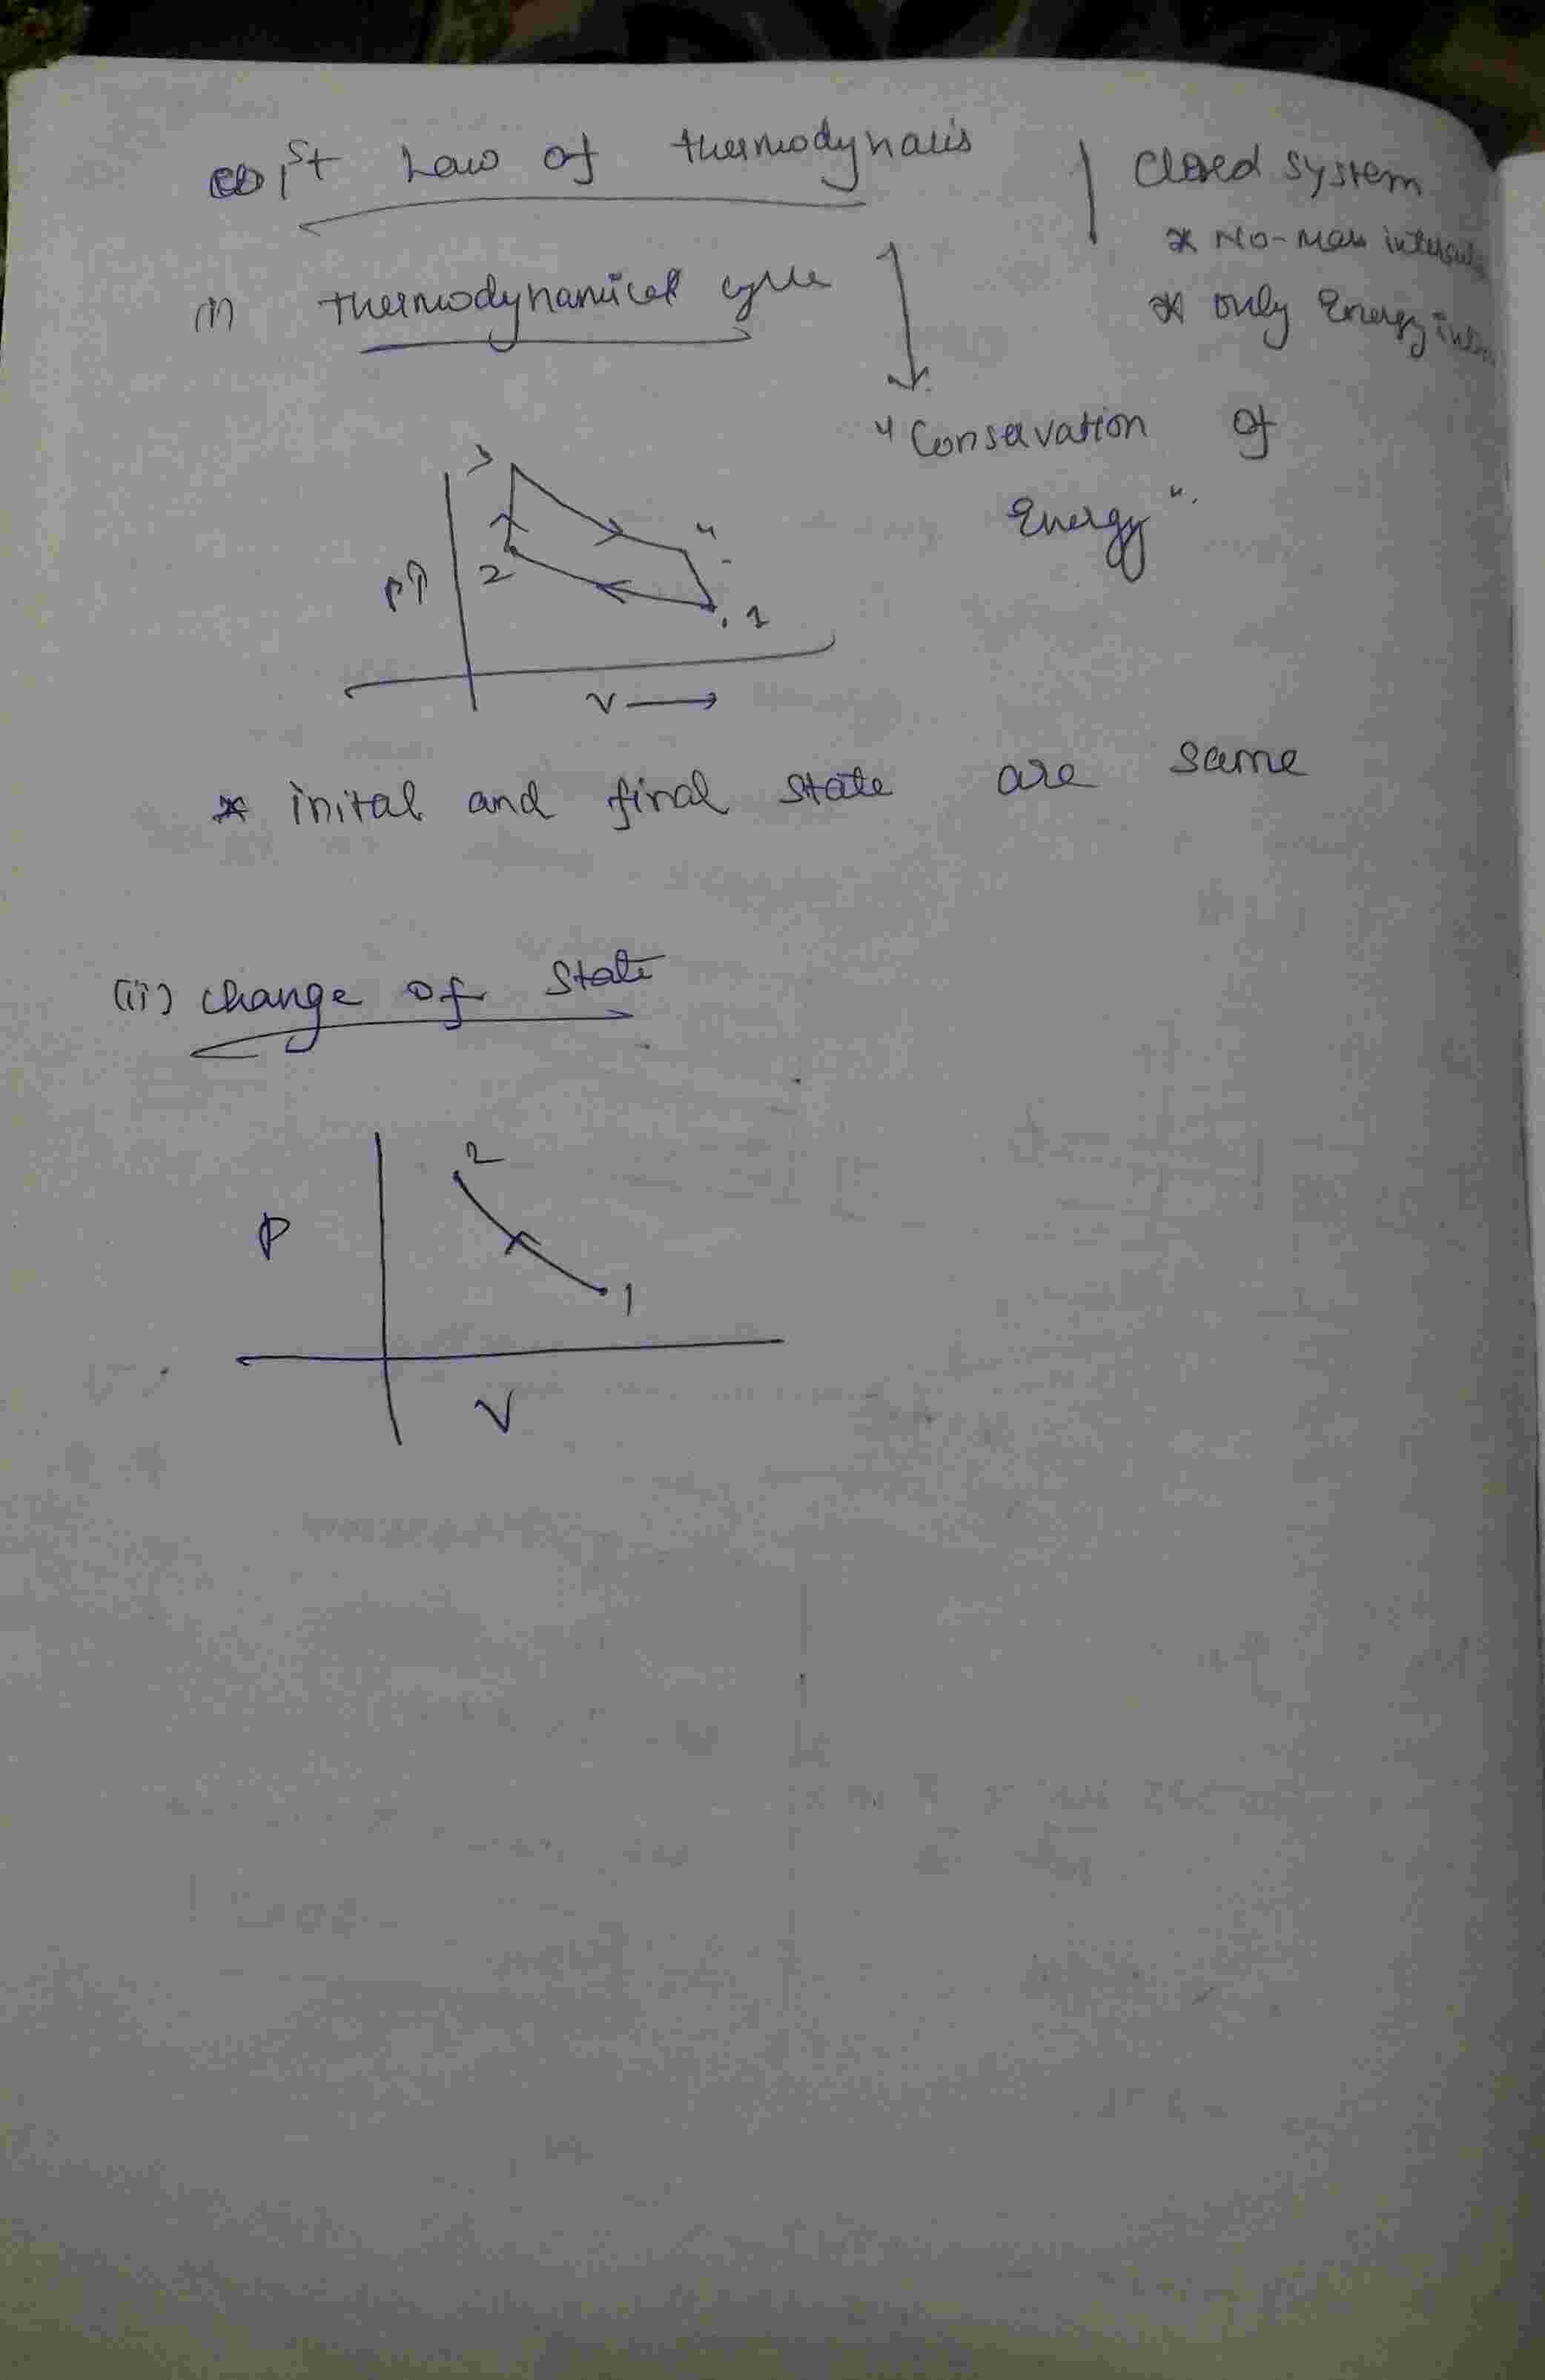 1st Law of thermodynamis
Closed system
* No-mass
* only Energy
(i) thermodynamical cycle
"Conservation of
Energy".
3
4
P↑
2
1
V →
* inital and final state are same
(ii) change of state
2
P
1
V